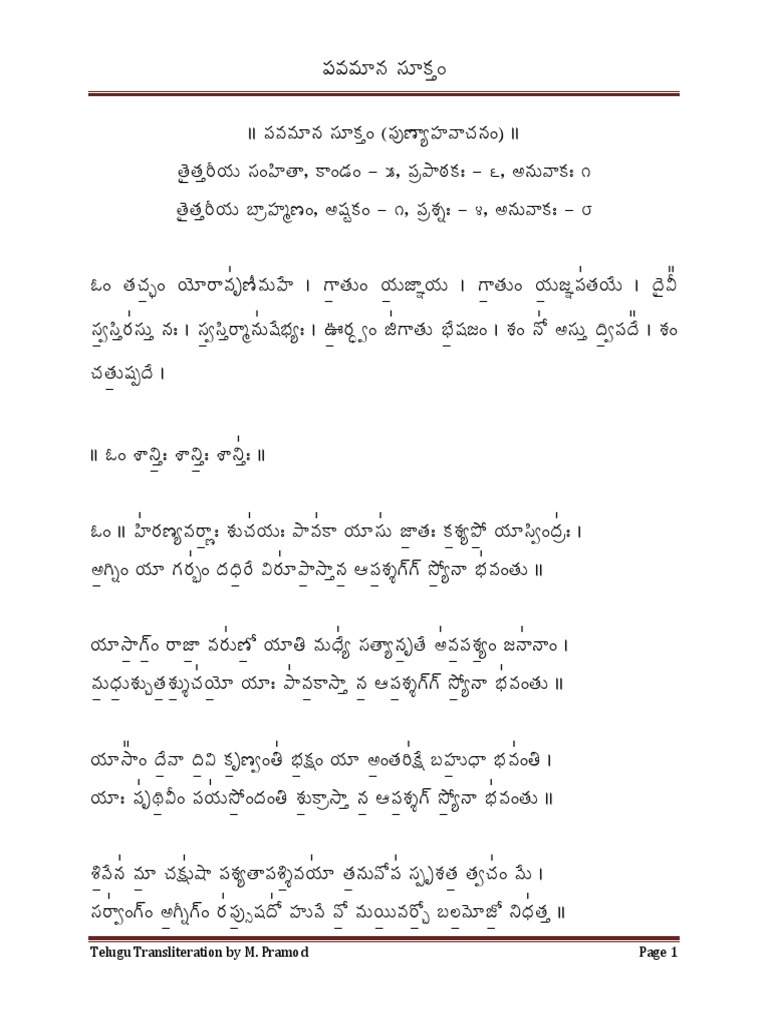 పవమాన సూక్తం
॥ పవమాన సూక్తం (పుణ్యాహవాచనం) ॥
తైత్తరీయ సంహితా, కాండం – ౫, ప్రపాఠకః – ౬, అనువాకః ౧
తైత్తరీయ బ్రాహ్మణం, అష్టకం – ౧, ప్రశ్నః – ౪, అనువాకః – ౮
ఓం తచ్ఛ॒ం యోరావృ॑ణీమహే । గా॒తుం య॒జ్ఞాయ । గా॒తుం య॒జ్ఞప॑తయే । దైవీ᳚
స్వ॒స్తిర॑స్తు నః । స్వ॒స్తిర్మాను॑షేభ్యః । ఊ॒ర్ధ్వం జి॑గాతు భే॒షజం । శం నో॑ అస్తు ద్వి॒పదే᳚ । శం
చతు॒ష్పదే ।
॥ ఓం శాన్తి॒ః శాన్తి॒ః శాన్తి॑ః ॥
ఓం ॥ హి॑రణ్యవర్ణా॒ః శుచ॑యః పావ॑కా యాసు॑ జా॒తః క॒శ్యపో॒ యాస్వింద్ర॑ః ।
అ॒గ్నిం యా గర్భ॑ం దధి॒రే విరూ॑పా॒స్తాన॒ ఆప॒శ్శగ్‍గ్ స్యో॒నా భ॑వంతు ॥
యాసా॒గ్‍ం రాజా॒ వరు॑ణో॒ యాతి మధ్యే॑ సత్యానృ॒తే అ॑వ॒పశ్య॒ం జనా॑నాం ।
మ॒ధు॒శ్చుత॒శ్శుచ॑యో॒ యాః పా॑వ॒కాస్తా న॒ ఆప॒శ్శగ్‍గ్ స్యో॒నా భ॑వంతు ॥
యాసా᳚ం దే॒వా ది॒వి కృ॒ణ్వంతి॑ భ॒క్షం యా అ॒ంతరి॑క్షే బహు॒ధా భవ॑ంతి ।
యాః పృ॑థి॒వీం పయ॑సో॒ందంతి శు॒క్రాస్తా న॒ ఆప॒శ్శగ్ స్యో॒నా భ॑వంతు ॥
శి॒వేన॑ మా॒ చక్షు॑షా పశ్యతాపశ్శి॒వయా॑ త॒నువోప॑ స్పృశత॒ త్వచ॑ం మే ।
సర్వా॑ంగ్‍ం అ॒గ్నీగ్‍ం ర॑ప్సు॒షదో॑ హువే వో॒ మయి॒వర్చో॒ బల॒మోజో॒ నిధ॑త్త ॥
Telugu Transliteration by M. Pramod Page 1